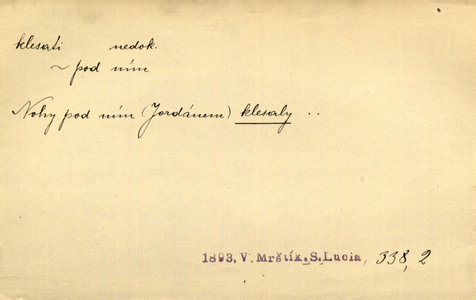 klesati nedok.
~ pod ním
Nohy pod ním (Jordánem) klesaly ..
1893, V. Mrštík, S. Lucia, 338, 2